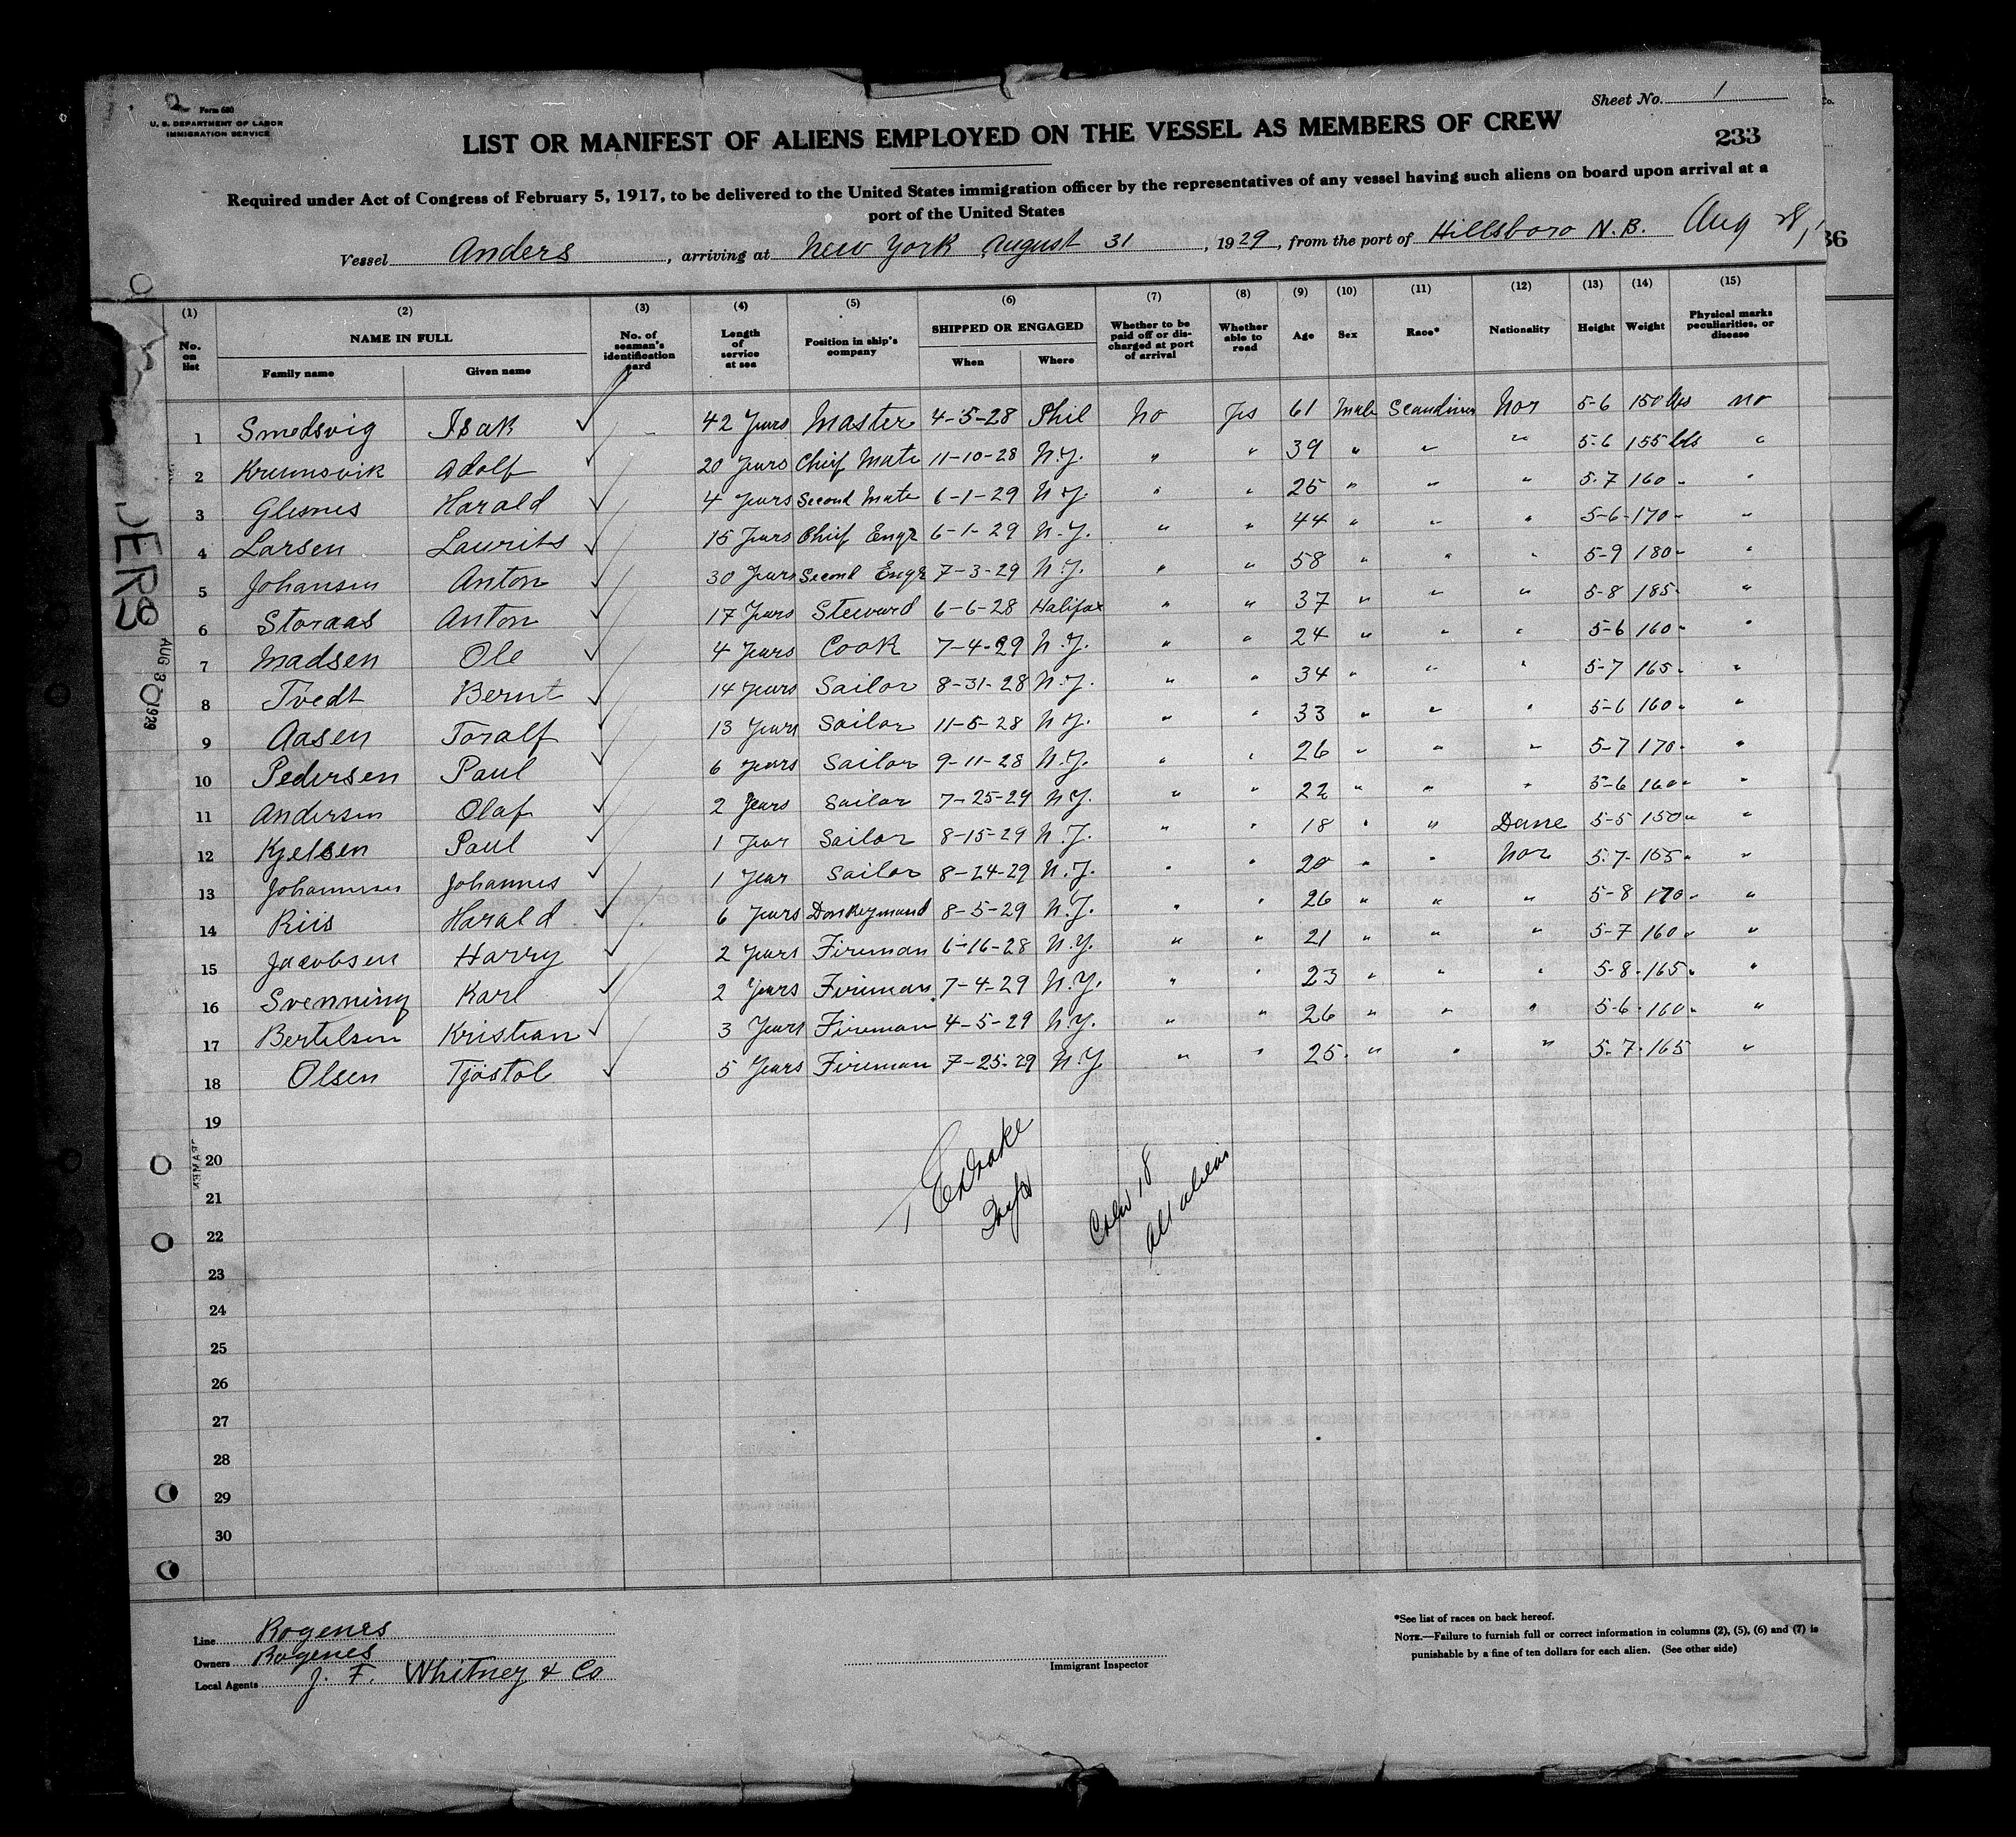 Form 680
U. S. DEPARTMENT OF LABOR
IMMIGRATION SERVICE
Sheet No. 1
LIST OR MANIFEST OF ALIENS EMPLOYED ON THE VESSEL AS MEMBERS OF CREW
233
Required under Act of Congress of February 5, 1917, to be delivered to the United States immigration officer by the representatives of any vessel having such aliens on board upon arrival at a
port of the United States
Vessel Anders, arriving at New York August 31, 1929, from the port of Hillsboro N.B. Aug 28,
36
(1) (2) (3) (4) (5) (6) (7) (8) (9) (10) (11) (12) (13) (14) (15)
No. on list NAME IN FULL Family name Given name No. of seaman's identification card Length of service at sea Position in ship's company SHIPPED OR ENGAGED When Where Whether to be paid off or discharged at port of arrival Whether able to read Age Sex Race* Nationality Height Weight Physical marks peculiarities, or disease
1 Smedsvig Isak ✓ 42 Years Master 4-5-28 Phil No Yes 61 Male Scandinav Nor 5-6 150 lbs no
2 Krumsvik Adolf ✓ 20 Years Chief Mate 11-10-28 N.Y. " " 39 " " " 5-6 155 lbs "
3 Glesnes Harald ✓ 4 Years Second Mate 6-1-29 N.Y. " " 25 " " " 5-7 160 " "
4 Larsen Laurits ✓ 15 Years Chief Engr 6-1-29 N.Y. " " 44 " " " 5-6 170 " "
5 Johansen Anton ✓ 30 Years Second Engr 7-3-29 N.Y. " " 58 " " " 5-9 180 " "
6 Storaas Anton ✓ 17 Years Steward 6-6-28 Halifax " " 37 " " " 5-8 185 " "
7 Madsen Ole ✓ 4 Years Cook 7-4-29 N.Y. " " 24 " " " 5-6 160 " "
8 Tvedt Bernt ✓ 14 Years Sailor 8-31-28 N.Y. " " 34 " " " 5-7 165 " "
9 Aasen Toralf ✓ 13 Years Sailor 11-5-28 N.Y. " " 33 " " " 5-6 160 " "
10 Pedersen Paul ✓ 6 Years Sailor 9-11-28 N.Y. " " 26 " " " 5-7 170 " "
11 Andersen Olaf ✓ 2 Years Sailor 7-25-29 N.Y. " " 22 " " " 5-6 160 " "
12 Kjelsen Paul ✓ 1 Year Sailor 8-15-29 N.Y. " " 18 " " Dane 5-5 150 " "
13 Johannesen Johannes ✓ 1 Year Sailor 8-24-29 N.Y. " " 20 " " Nor 5-7 155 " "
14 Riis Harald ✓ 6 Years Donkeymand 8-5-29 N.Y. " " 26 " " " 5-8 170 " "
15 Jacobsen Harry ✓ 2 Years Fireman 6-16-28 N.Y. " " 21 " " " 5-7 160 " "
16 Svenning Karl ✓ 2 Years Fireman 7-4-29 N.Y. " " 23 " " " 5-8 165 " "
17 Bertelsen Kristian ✓ 3 Years Fireman 4-5-29 N.Y. " " 26 " " " 5-6 160 " "
18 Olsen Tjöstol ✓ 5 Years Fireman 7-25-29 N.Y. " " 25 " " " 5-7 165 "
19
20
21
22
23
24
25
26
27
28
29
30
Crew 18
All aliens
DERS
AUG 30 1929
Line Rogenes
Owners Rogenes
Local Agents J. F. Whitney & Co
Immigrant Inspector
*See list of races on back hereof.
NOTE.—Failure to furnish full or correct information in columns (2), (5), (6) and (7) is
punishable by a fine of ten dollars for each alien. (See other side)